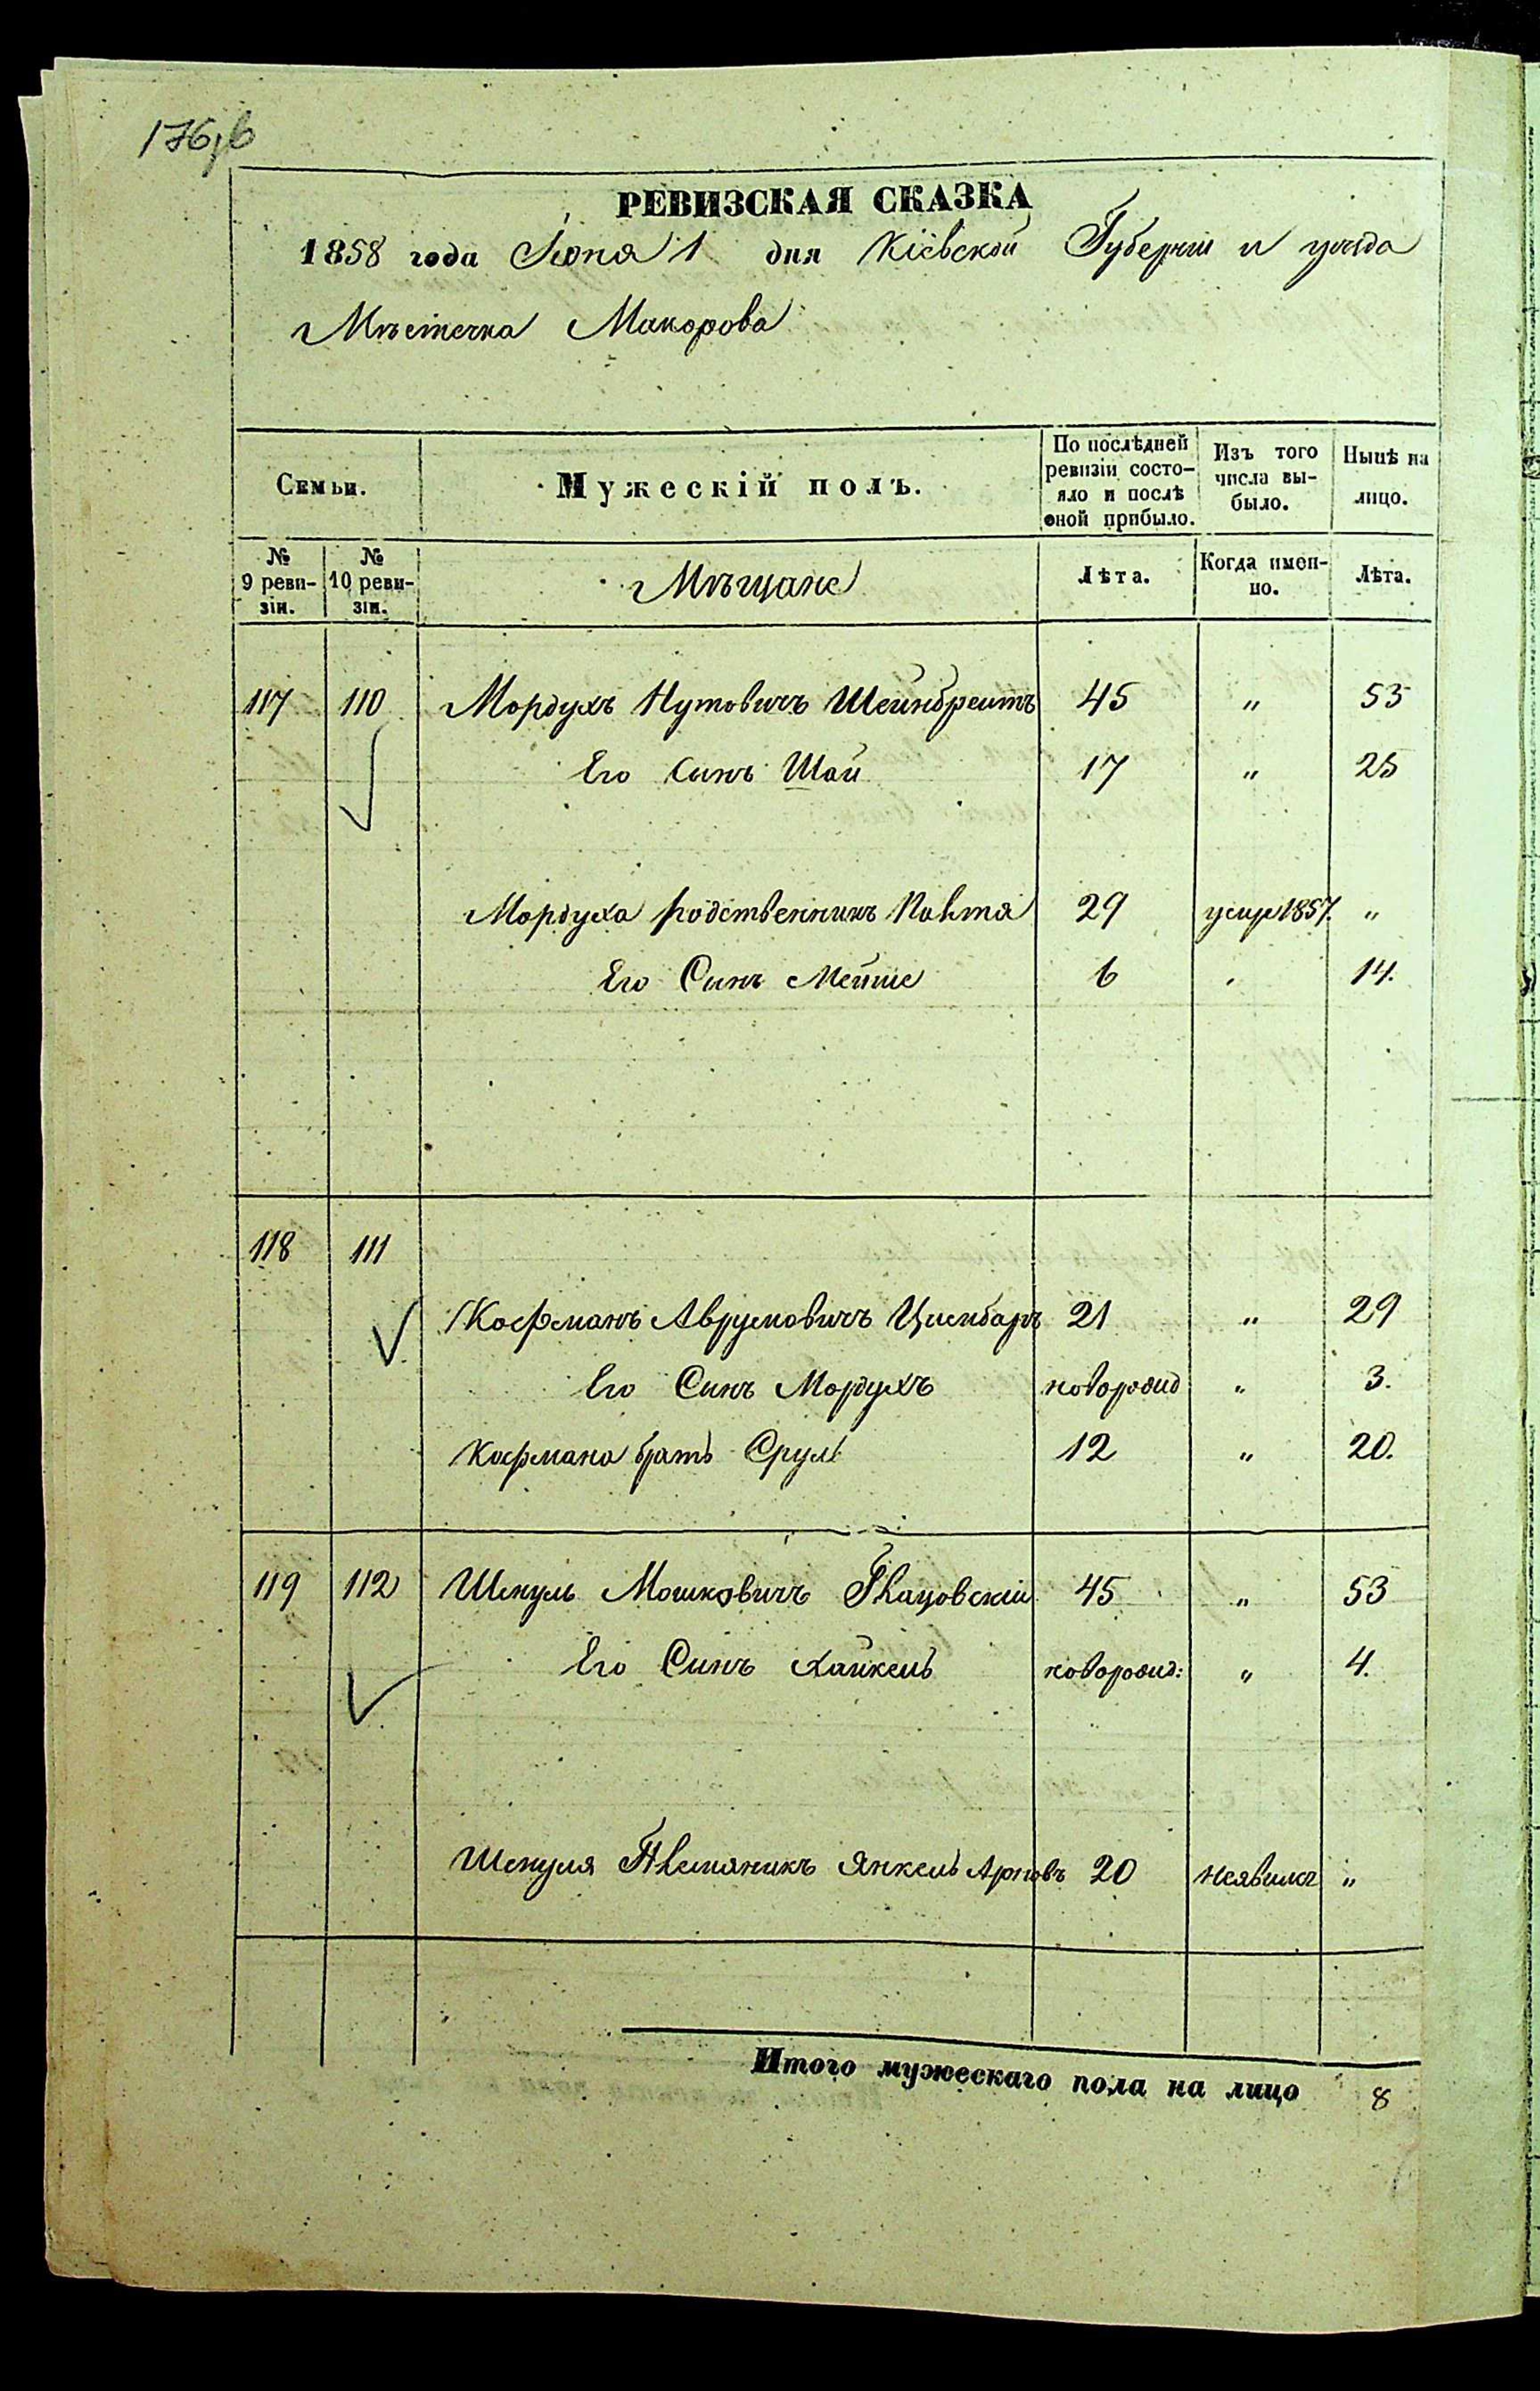 176об
РЕВИЗСКАЯ СКАЗКА
1858 года Июня 1 дня Кіевской Губерніи и уѣзда
Мѣстечка Макорова
Семьи.
Мужескій полъ.
По послѣдней ревизіи состояло и послѣ оной прибыло.
Изъ того числа выбыло.
Нынѣ на лицо.
№ 9 ревизіи.
№ 10 ревизіи.
Мѣщане
Лѣта.
Когда именно.
Лѣта.
117 110 Мордухъ Нутовичъ Шейнбреитъ 45 " 53
Его Синъ Шаи 17 " 25
Мордуха родственникъ 29 умре 1857. "
Его Синъ Мейше 6 " 14.
118 111
Кофманъ Аврумовичъ Цимбаръ 21 " 29
Его Синъ Мордухъ новорожд " 3.
Кофмана братъ Сруль 12 " 20.
119 112 Шмуль Мошковичъ 45 " 53
Его Синъ Хаикель новорожд: " 4.
Шмуля Племяникъ Янкель 20 неявилс "
Итого мужескаго пола на лицо 8